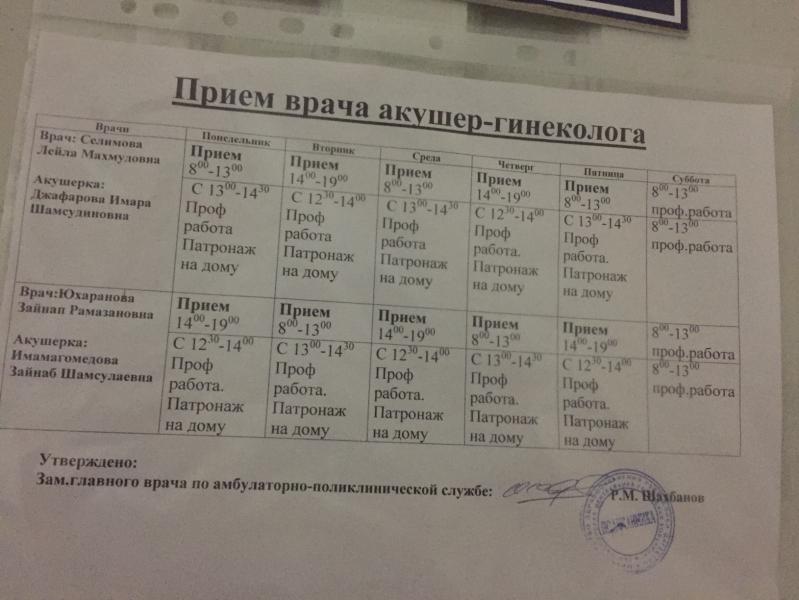 Прием врача акушер-гинеколога
Врачи Понедельник Вторник Среда Четверг Пятница Суббота
Врач: Селимова
Лейла Махмудовна
Акушерка:
Джафарова Имара
Шамсудиновна
Прием
8⁰⁰-13⁰⁰
С 13⁰⁰-14³⁰
Проф
работа
Патронаж
на дому
Прием
14⁰⁰-19⁰⁰
С 12³⁰-14⁰⁰
Проф
работа
Патронаж
на дому
Прием
8⁰⁰-13⁰⁰
С 13⁰⁰-14³⁰
Проф
работа
Патронаж
на дому
Прием
14⁰⁰-19⁰⁰
С 12³⁰-14⁰⁰
Проф
работа.
Патронаж
на дому
Прием
8⁰⁰-13⁰⁰
С 13⁰⁰-14³⁰
Проф
работа.
Патронаж
на дому
8⁰⁰-13⁰⁰
проф.работа
8⁰⁰-13⁰⁰
проф.работа
Врач:Юхаранова
Зайнап Рамазановна
Акушерка:
Имамагомедова
Зайнаб Шамсулаевна
Прием
14⁰⁰-19⁰⁰
С 12³⁰-14⁰⁰
Проф
работа.
Патронаж
на дому
Прием
8⁰⁰-13⁰⁰
С 13⁰⁰-14³⁰
Проф
работа.
Патронаж
на дому
Прием
14⁰⁰-19⁰⁰
С 12³⁰-14⁰⁰
Проф
работа.
Патронаж
на дому
Прием
8⁰⁰-13⁰⁰
С 13⁰⁰-14³⁰
Проф
работа.
Патронаж
на дому
Прием
14⁰⁰-19⁰⁰
С 12³⁰-14⁰⁰
Проф
работа.
Патронаж
на дому
8⁰⁰-13⁰⁰
проф.работа
8⁰⁰-13⁰⁰
проф.работа
Утверждено:
Зам.главного врача по амбулаторно-поликлинической службе: Р.М. Шахбанов